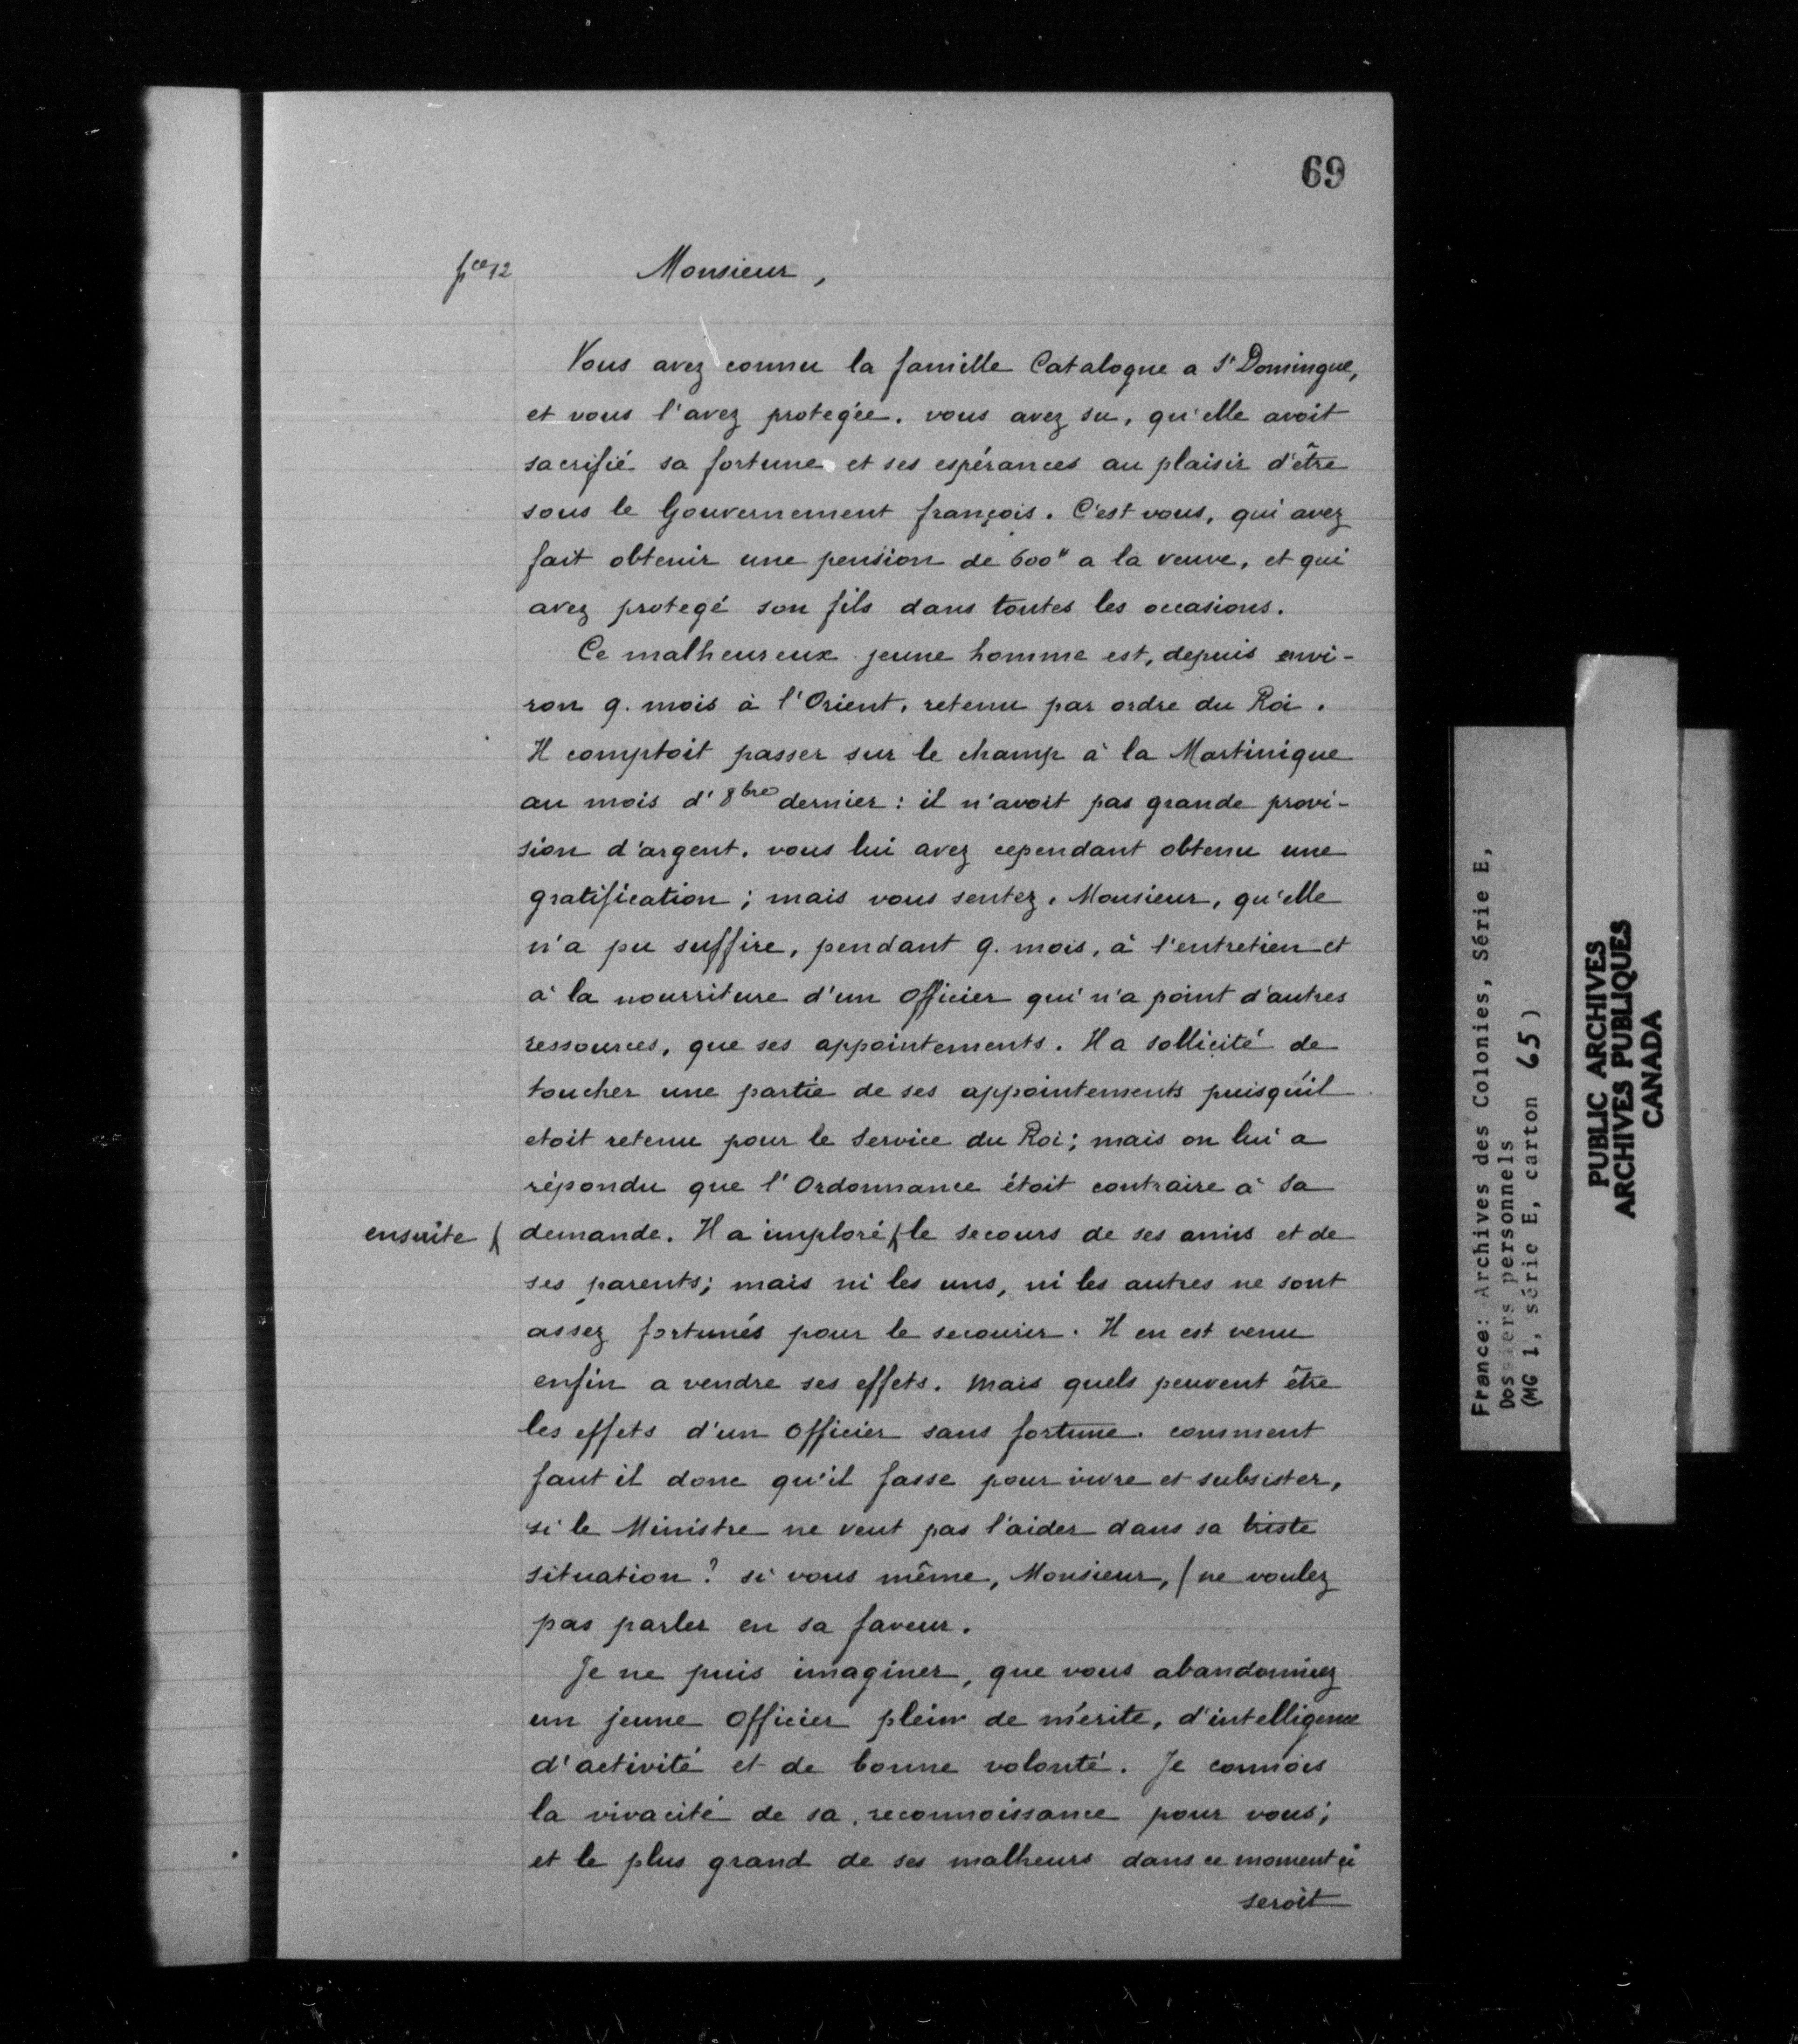 69
pce 12
Monsieur,
Vous avez connu la famille Catalogne a St Domingue,
et vous l'avez protegée. vous avez su, qu'elle avoit
sacrifié sa fortune et ses espérances au plaisir d'être
sous le Gouvernement françois. C'est vous, qui avez
fait obtenir une pension de 600# a la veuve, et qui
avez protegé son fils dans toutes les occasions.
Ce malheureux jeune homme est, depuis envi-
ron 9. mois à l'Orient, retenu par ordre du Roi.
Il comptoit passer sur le champ à la Martinique
au mois d'8bre dernier: il n'avoit pas grande provi-
sion d'argent. vous lui avez cependant obtenu une
gratification; mais vous sentez, Monsieur, qu'elle
n'a pu suffire, pendant 9. mois, à l'entretien et
à la nourriture d'un Officier qui n'a point d'autres
ressources, que ses appointements. Il a sollicité de
toucher une partie de ses appointements puisqu'il
etoit retenu pour le service du Roi; mais on lui a
répondu que l'Ordonnance étoit contraire à sa
ensuite / demande. Il a imploré / le secours de ses amis et de
ses parents; mais ni les uns, ni les autres ne sont
assez fortunés pour le secourir. Il en est venu
enfin a vendre ses effets. Mais quels peuvent être
les effets d'un Officier sans fortune. comment
faut il donc qu'il fasse pour vivre et subsister,
si le Ministre ne veut pas l'aider dans sa triste
situation? si vous même, Monsieur, / ne voulez
pas parler en sa faveur.
Je ne puis imaginer, que vous abandonniez
un jeune Officier plein de mérite, d'intelligence
d'activité et de bonne volonté. Je connois
la vivacité de sa reconnoissance pour vous;
et le plus grand de ses malheurs dans ce moment ci
seroit
France: Archives des Colonies, Série E,
Dossiers personnels
(MG 1, série E, carton 65)
PUBLIC ARCHIVES
ARCHIVES PUBLIQUES
CANADA